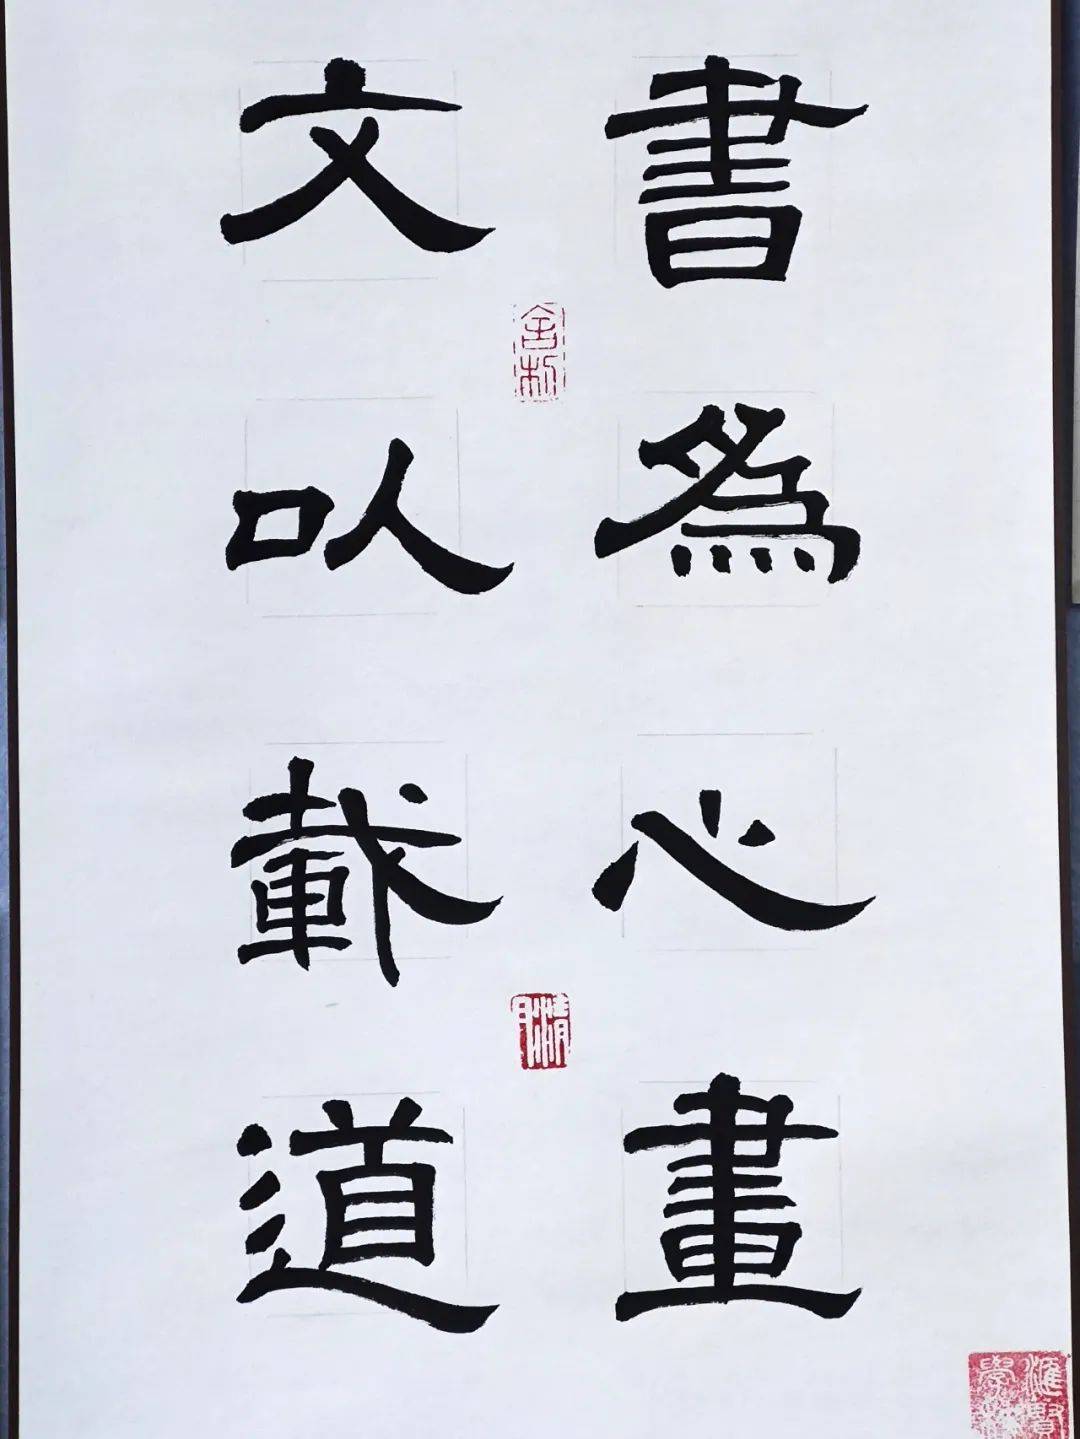 書為心畫
文以載道